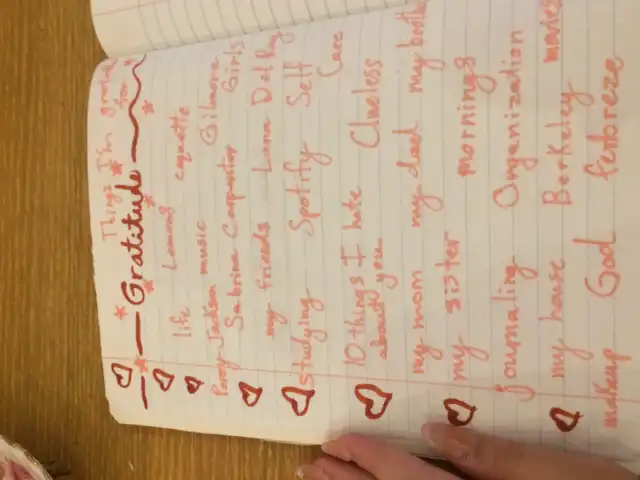 Things I'm grateful for
Gratitude
Learning coquette
life
music Gilmore
Percy Jackson Girls
Sabrina Carpenter
my friends Lana Del Rey
studying Spotify Self
Care
10 things I hate Clueless
about you
my mom my dad my brother
my sister mornings
journaling Organization
my house Berkeley movies
makeup God febreze